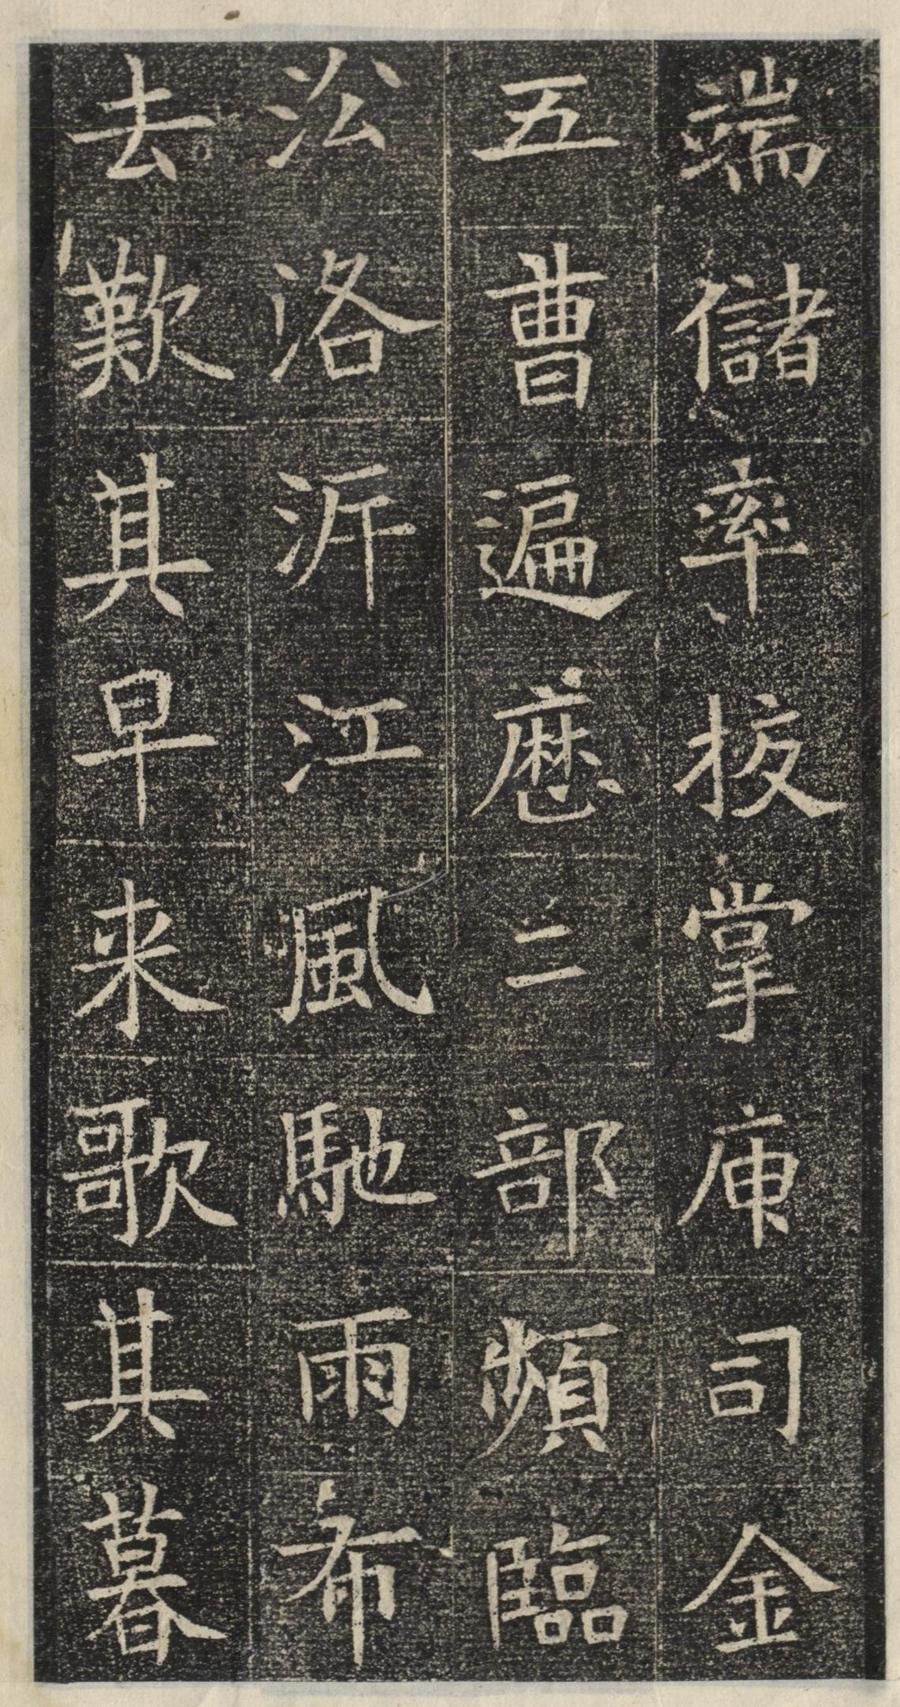 端儲率挍掌庾司金
五曹遍歷二部頻臨
沿洛泝江風馳雨布
去歎其早来歌其暮